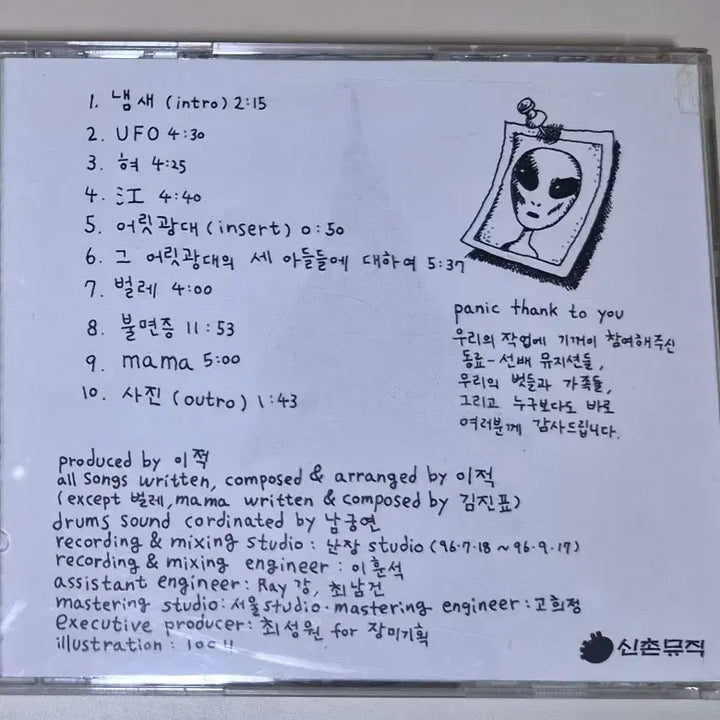 1. 냄새 (intro) 2:15
2. UFO 4:30
3. 혀 4:25
4. 江 4:40
5. 어릿광대 (insert) 0:50
6. 그 어릿광대의 세 아들들에 대하여 5:37
7. 벌레 4:00
8. 불면증 11:53
9. mama 5:00
10. 사진 (outro) 1:43
panic thank to you
우리의 작업에 기꺼이 참여해주신
동료-선배 뮤지션들,
우리의 벗들과 가족들,
그리고 누구보다도 바로
여러분께 감사드립니다.
produced by 이적
all songs written, composed & arranged by 이적
(except 벌레, mama written & composed by 김진표)
drums sound cordinated by 남궁연
recording & mixing studio: 난장 studio (96·7·18 ~ 96·9·17)
recording & mixing engineer: 이훈석
assistant engineer: Ray 강, 최남건
mastering studio: 서울 studio · mastering engineer: 고희정
executive producer: 최성원 for 장미기획
illustration :
신촌뮤직